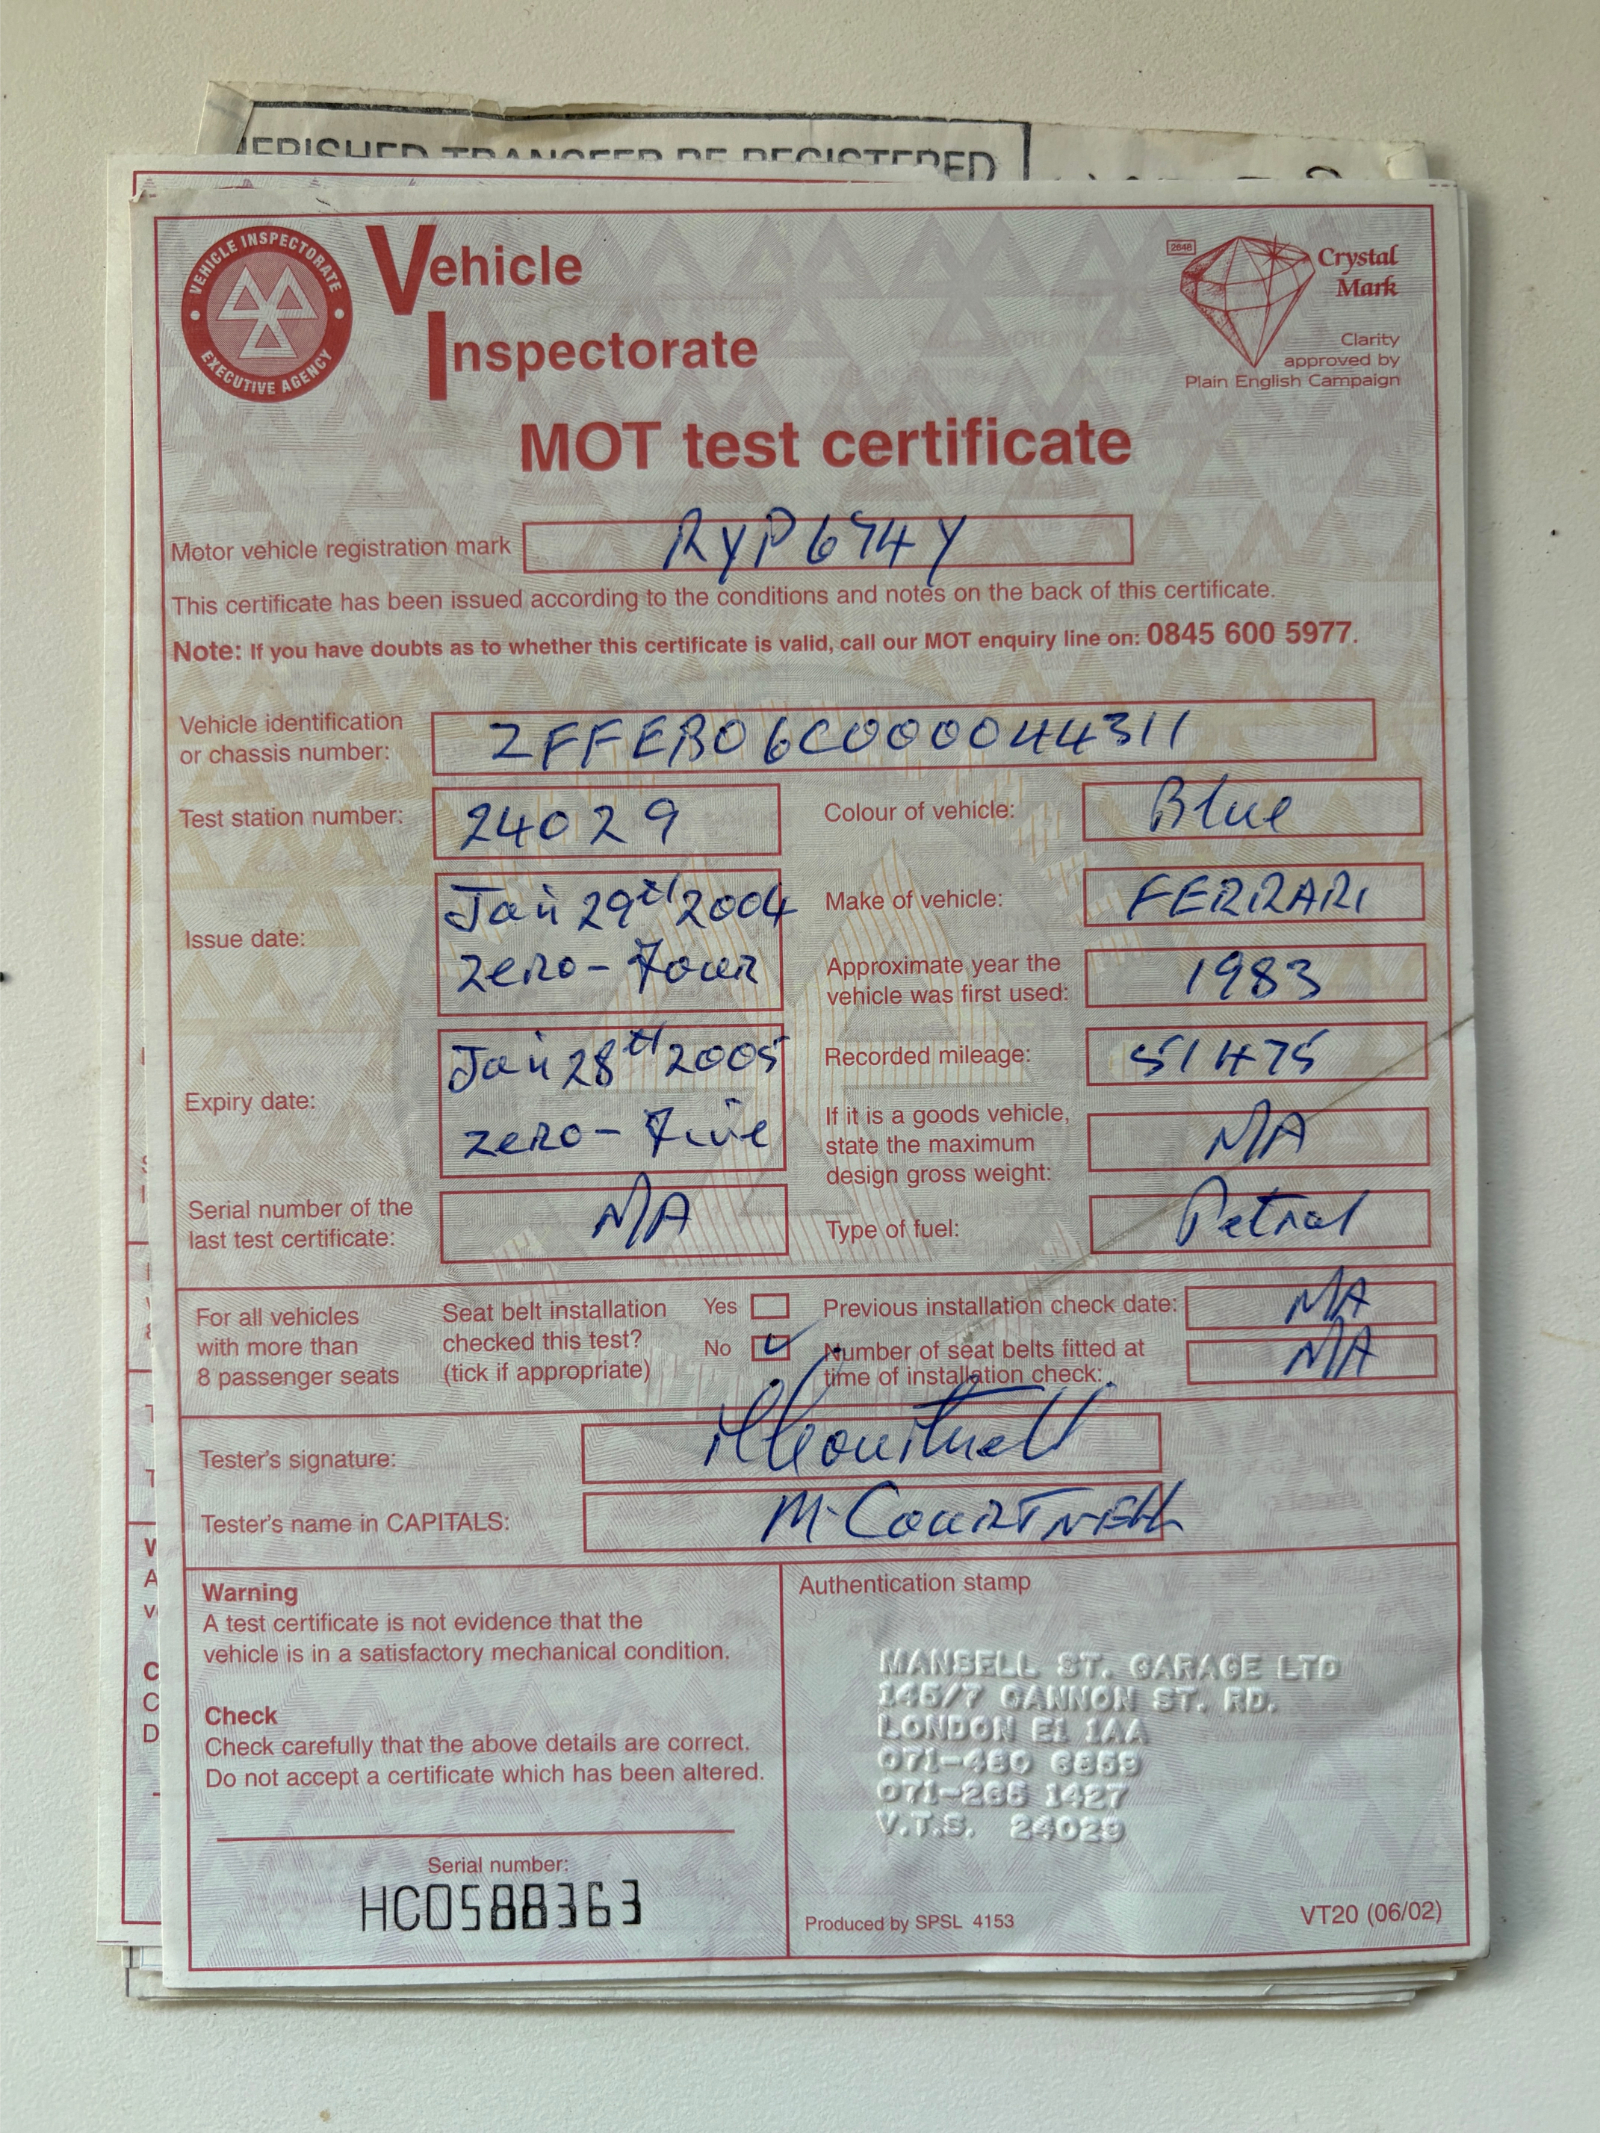 ERISHED TRANSFER RE REGISTERED
VEHICLE INSPECTORATE
EXECUTIVE AGENCY
Vehicle
Inspectorate
2848
Crystal
Mark
Clarity
approved by
Plain English Campaign
MOT test certificate
Motor vehicle registration mark RYP674Y
This certificate has been issued according to the conditions and notes on the back of this certificate.
Note: If you have doubts as to whether this certificate is valid, call our MOT enquiry line on: 0845 600 5977.
Vehicle identification
or chassis number: ZFFEB06C000044311
Test station number: 24029
Colour of vehicle: Blue
Issue date: Jan 29th 2004
zero-Four
Make of vehicle: FERRARI
Approximate year the
vehicle was first used: 1983
Expiry date: Jan 28th 2005
zero-Five
Recorded mileage: 51475
If it is a goods vehicle,
state the maximum
design gross weight: N/A
Serial number of the
last test certificate: N/A
Type of fuel: Petrol
For all vehicles
with more than
8 passenger seats
Seat belt installation
checked this test?
(tick if appropriate)
Yes
No ✓
Previous installation check date: N/A
Number of seat belts fitted at
time of installation check: N/A
Tester's signature:
Tester's name in CAPITALS: M. COURTNELL
Warning
A test certificate is not evidence that the
vehicle is in a satisfactory mechanical condition.
Check
Check carefully that the above details are correct.
Do not accept a certificate which has been altered.
Serial number:
HC0588363
Authentication stamp
MANSELL ST. GARAGE LTD
145/7 CANNON ST. RD.
LONDON E1 1AA
071-480 6859
071-265 1427
V.T.S. 24029
Produced by SPSL 4153
VT20 (06/02)